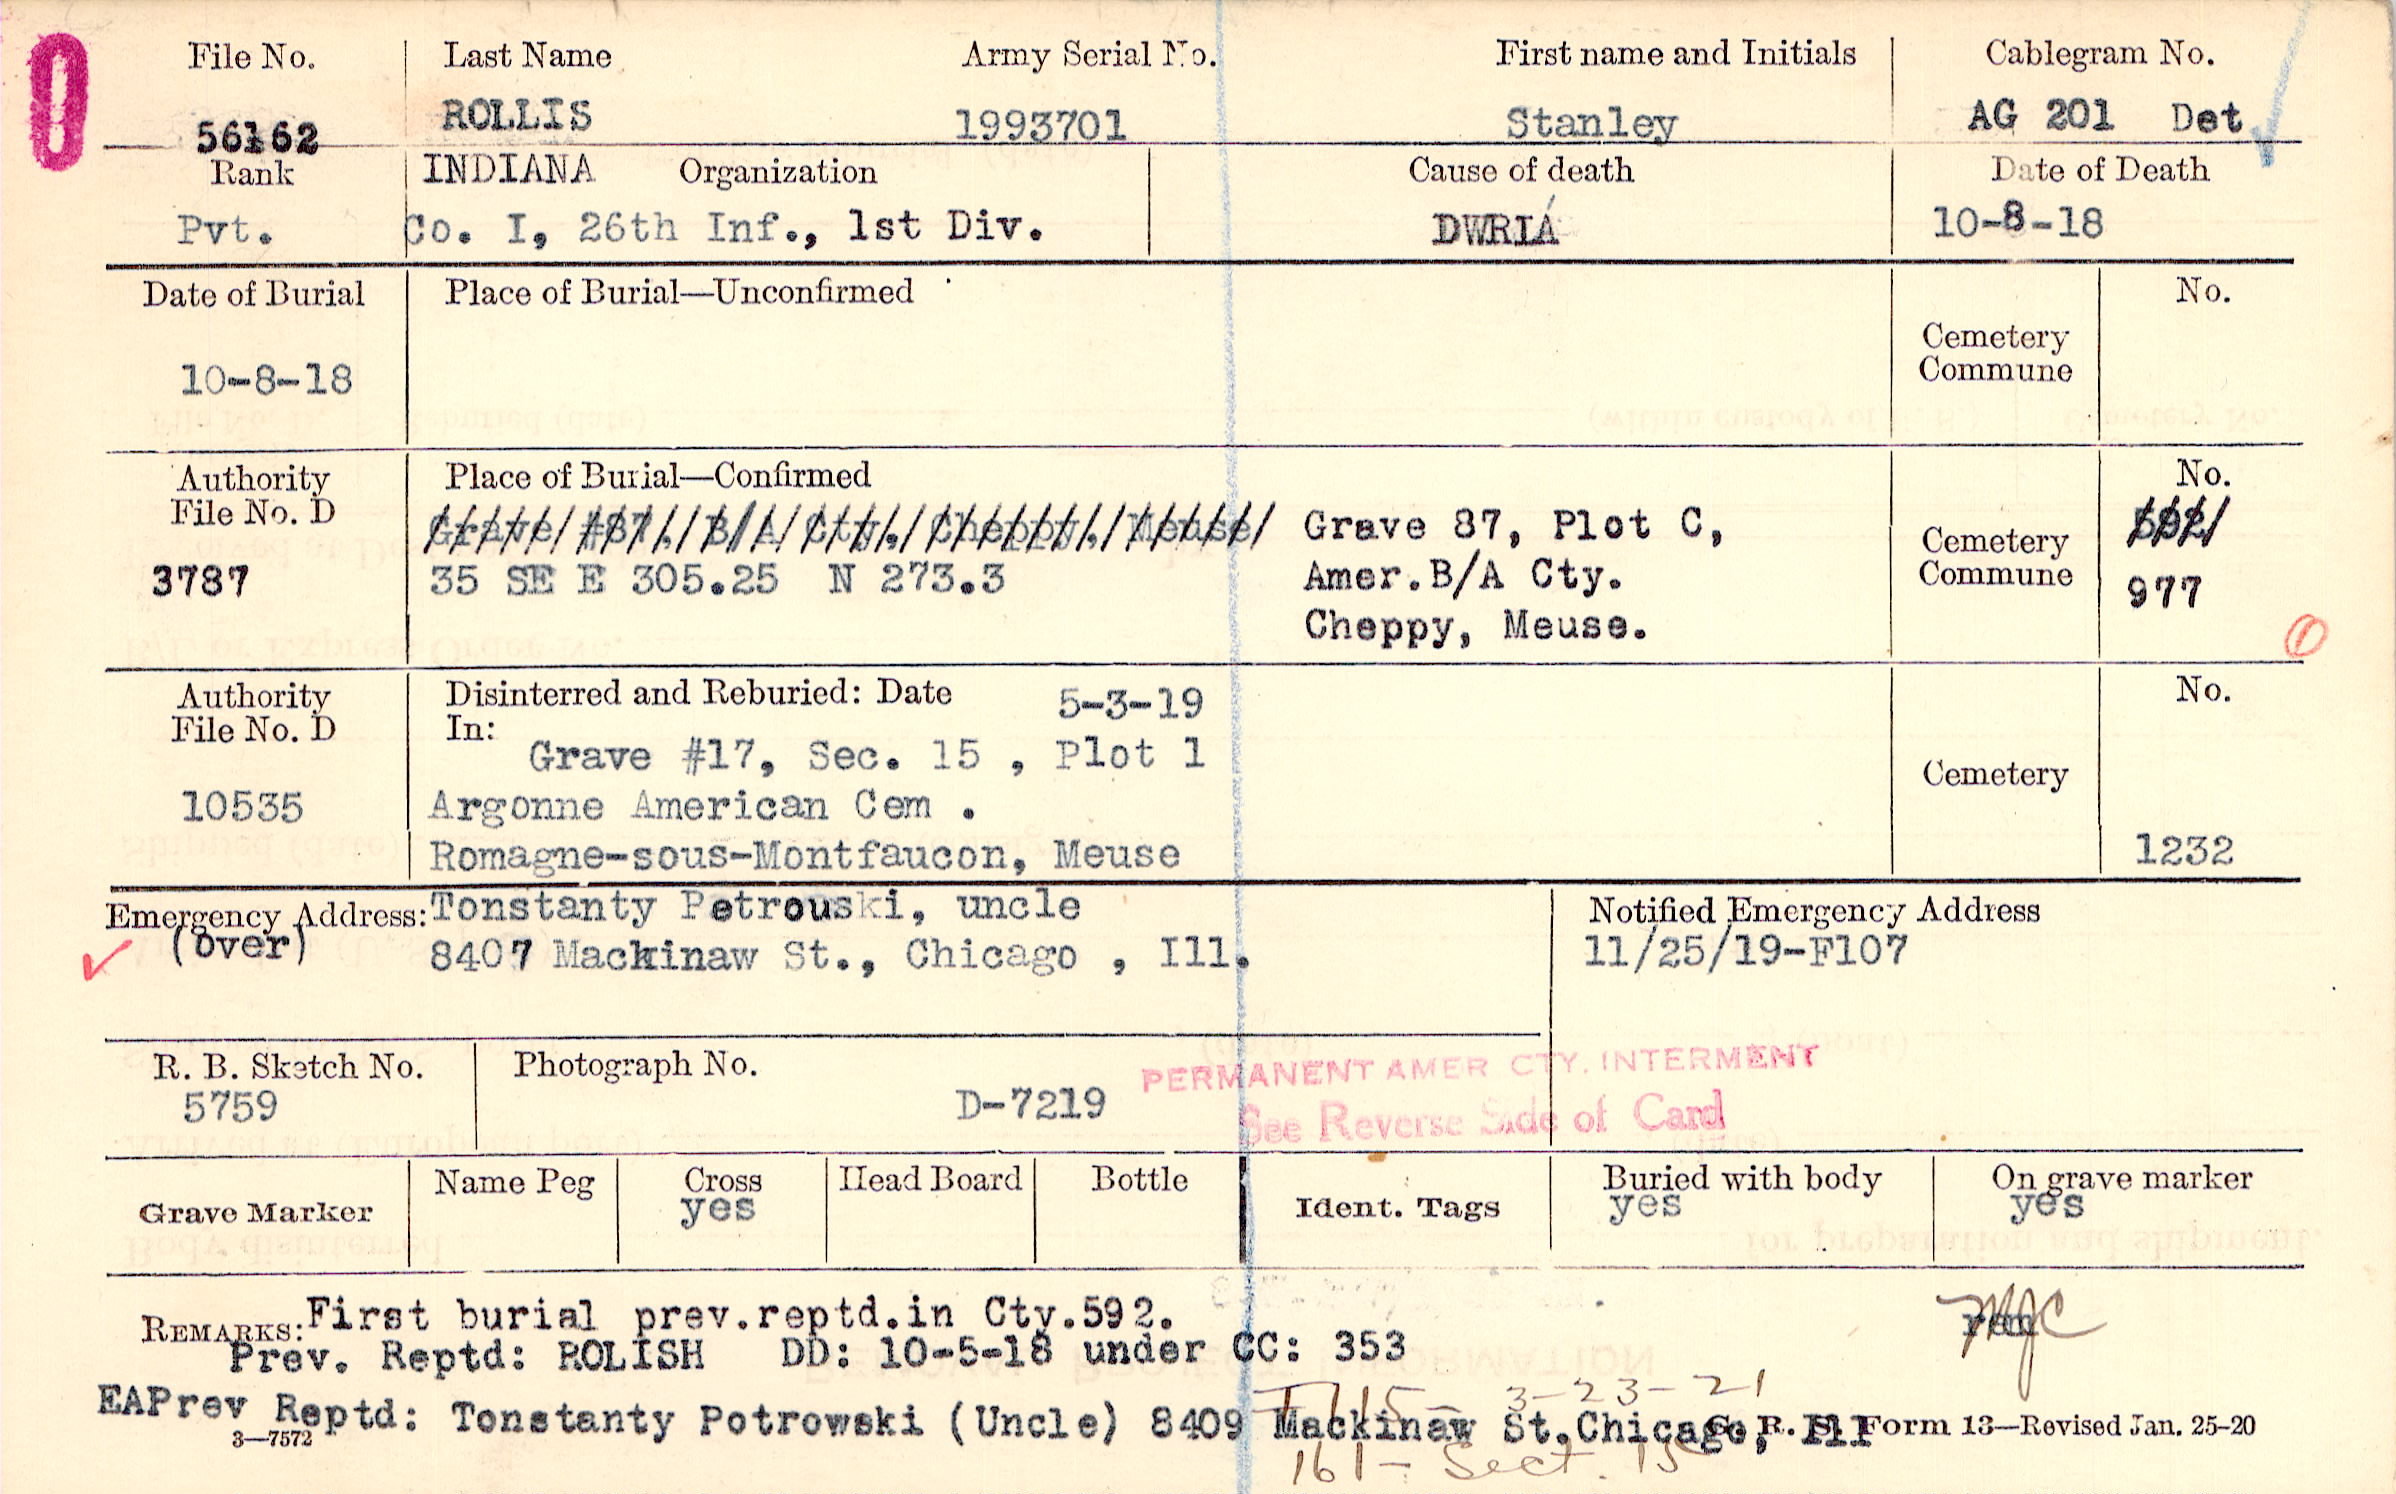 File No. Last Name Army Serial No. First name and Initials Cablegram No.
56162 ROLLIS 1993701 Stanley AG 201 Det
Rank INDIANA Organization Cause of death Date of Death
Pvt. Co. I, 26th Inf., 1st Div. DWRIA 10-8-18
Date of Burial Place of Burial—Unconfirmed No.
Cemetery
Commune
10-8-18
Authority Place of Burial—Confirmed No.
File No. D Grave #87, B/A Cty, Cheppy, Meuse Grave 87, Plot C, 592
Cemetery
3787 35 SE E 305.25 N 273.3 Amer.B/A Cty. Commune 977
Cheppy, Meuse.
Authority Disinterred and Reburied: Date 5-3-19 No.
File No. D In:
Grave #17, Sec. 15 , Plot 1
Cemetery
10535 Argonne American Cem .
Romagne-sous-Montfaucon, Meuse 1232
Emergency Address: Tonstanty Petrouski, uncle Notified Emergency Address
(over) 8407 Mackinaw St., Chicago , Ill. 11/25/19-F107
R. B. Sketch No. Photograph No. PERMANENT AMER CTY. INTERMENT
5759 D-7219 See Reverse Side of Card
Grave Marker Name Peg Cross Head Board Bottle Ident. Tags Buried with body On grave marker
yes yes yes
REMARKS: First burial prev.reptd.in Cty.592.
Prev. Reptd: ROLISH DD: 10-5-18 under CC: 353
3-23-21
EAPrev Reptd: Tonstanty Potrowski (Uncle) 8409 Mackinaw St.Chicago, Ill
3—7572 G. R. S. Form 13—Revised Jan. 25-20
161- Sect. 15